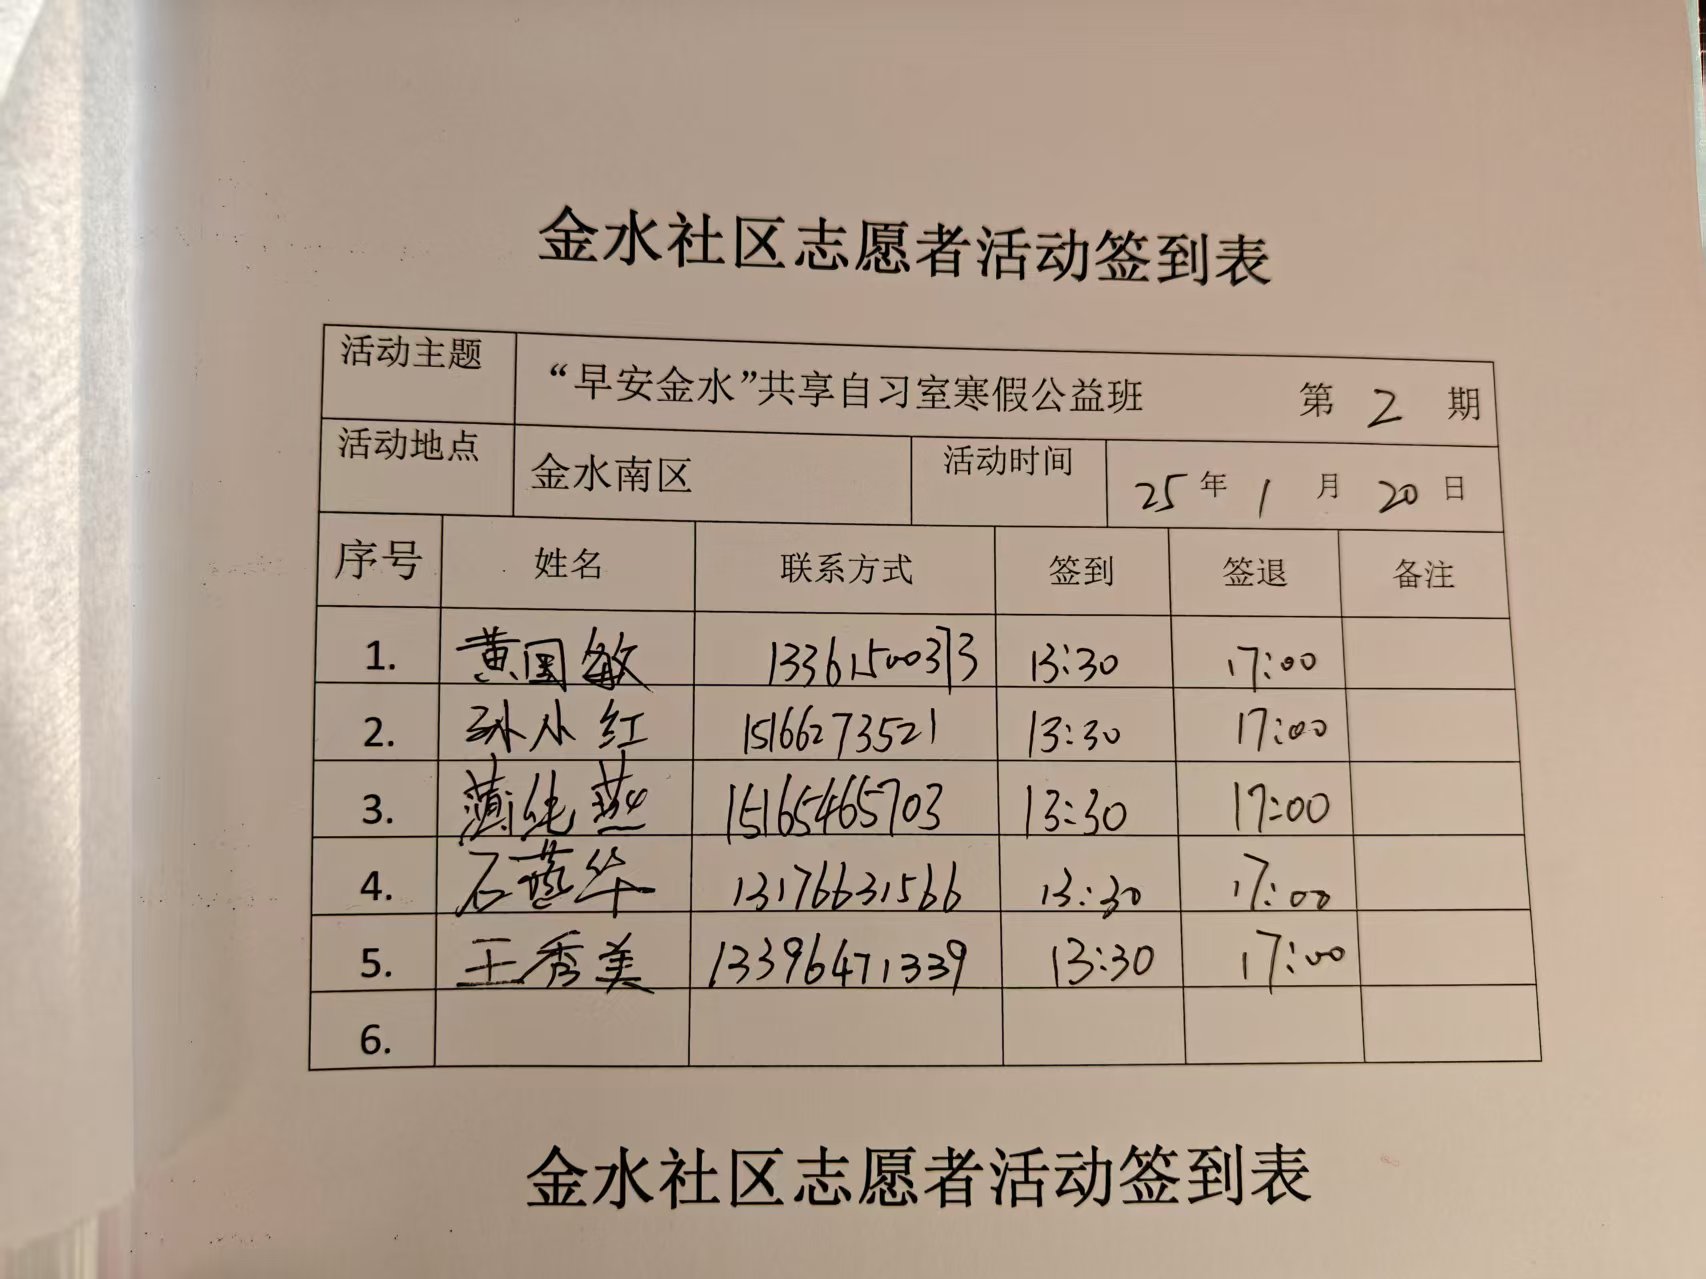 金水社区志愿者活动签到表
活动主题 “早安金水”共享自习室寒假公益班 第 2 期
活动地点 金水南区 活动时间 25 年 1 月 20 日
序号 姓名 联系方式 签到 签退 备注
1. 黄国敏 13361500373 13:30 17:00
2. 孙小红 15166273521 13:30 17:00
3. 蒲纯燕 15165465703 13:30 17:00
4. 石燕华 13176631566 13:30 17:00
5. 王秀美 13396471339 13:30 17:00
6.
金水社区志愿者活动签到表